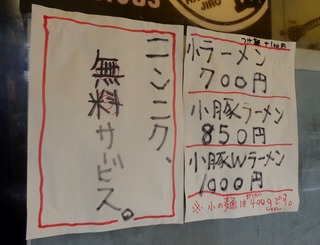 ニンニク、
無料サービス。
つけ麺 +100円
小ラーメン
700円
小豚ラーメン
850円
小豚Wラーメン
1000円
※小の麺は400gです。
JIRO